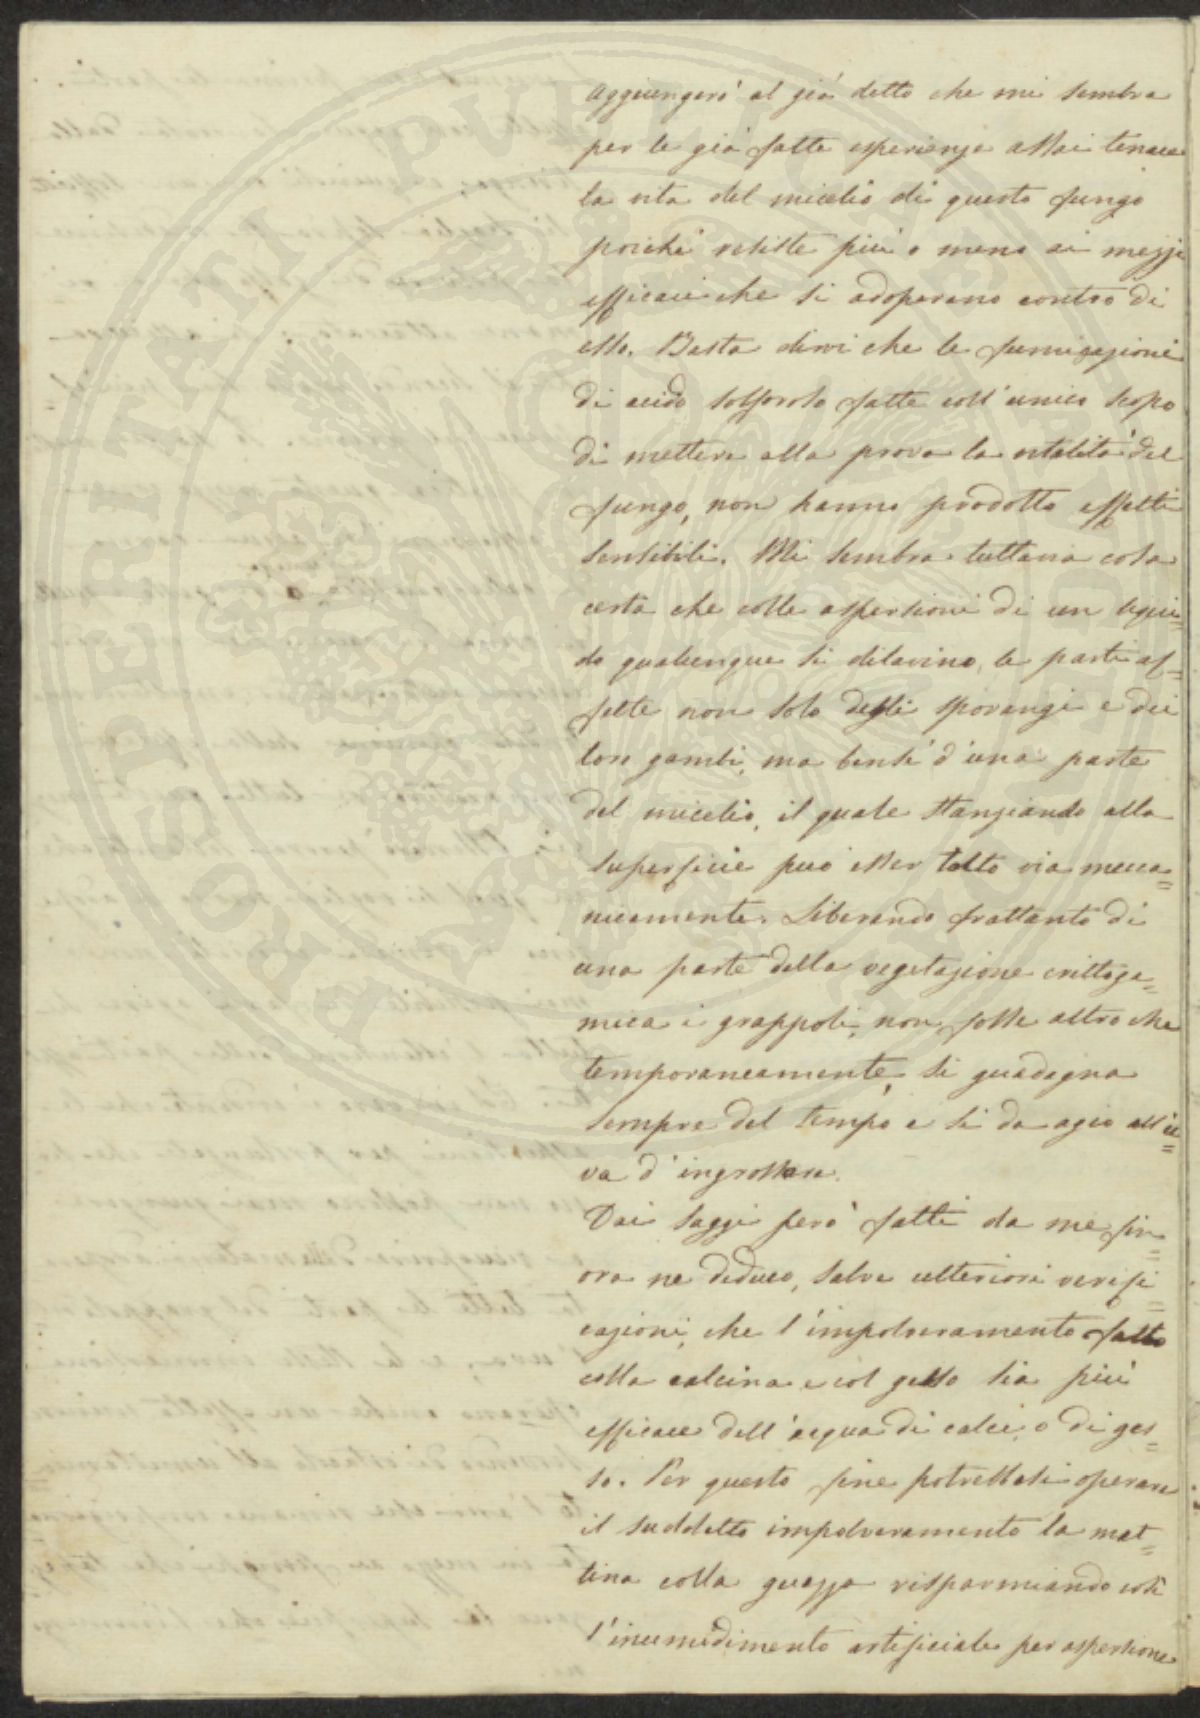 Aggiungerò al già detto che mi sembra
per le già fatte esperienze assai tenace
la vita del micelio di questo fungo
poichè resiste più o meno ai mezzi
efficaci che si adoperano contro di
esso. Basta dirvi che le fumigazioni
di acido solforoso fatte coll'unico scopo
di mettere alla prova la vitalità del
fungo, non hanno prodotto effetti
sensibili. Mi sembra tuttavia cosa
certa che colle aspersioni di un liqui=
do qualunque si dilavino, le parti af=
fette non solo degli sporangi e dei
loro gambi, ma bensì d'una parte
del micelio, il quale stanziando alla
superficie può esser tolto via mecca=
nicamente. Liberando frattanto di
una parte della vegetazione crittoga=
mica i grappoli, non fosse altro che
temporaneamente, si guadagna
sempre del tempo e si da agio all'u=
va d'ingrossare.
Dai saggi però fatti da me fin=
ora ne deduco, salve ulteriori verifi=
cazioni, che l'impolveramento fatto
colla calcina e col gesso sia più
efficace dell'acqua di calce, o di ges=
so. Per questo fine potrebbesi operare
il suddetto impolveramento la mat=
tina colla guazza risparmiando così
l'inumidimento artificiale per aspersione
PROSPERITATI PVBLICAE AVGENDAE